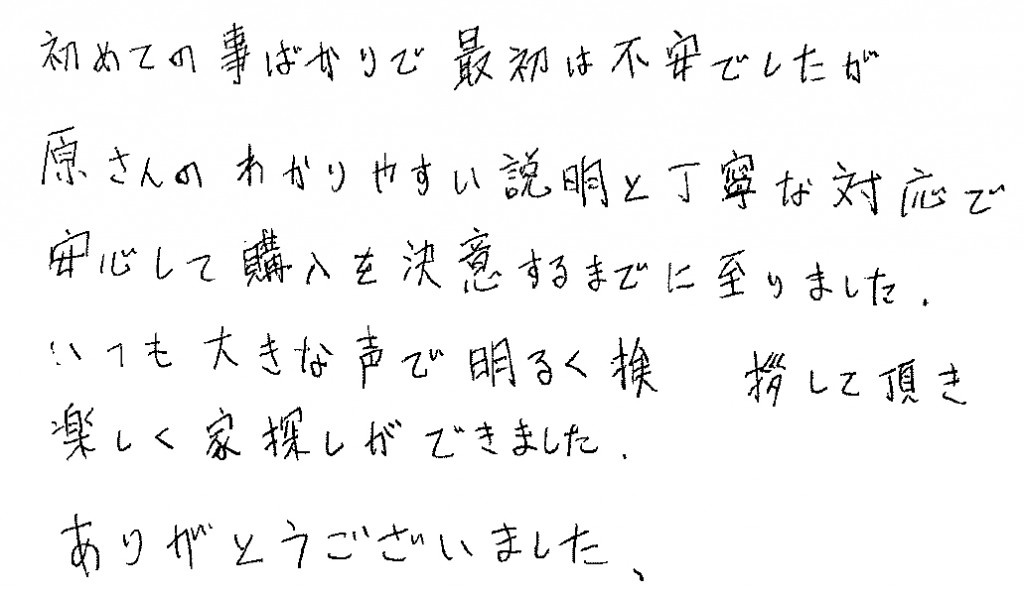 初めての事ばかりで最初は不安でしたが
原さんのわかりやすい説明と丁寧な対応で
安心して購入を決意するまでに至りました.
いつも大きな声で明るく挨 拶して頂き
楽しく家探しができました.
ありがとうございました、